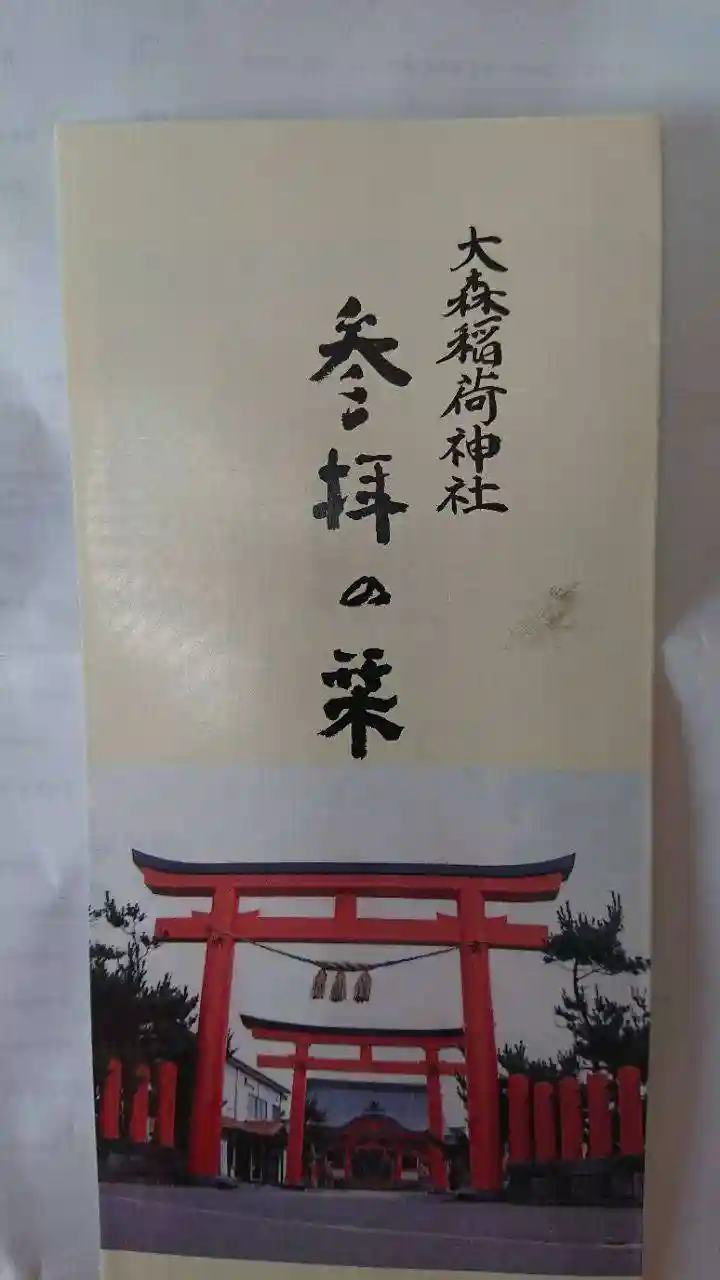 大森稲荷神社
参拝の栞